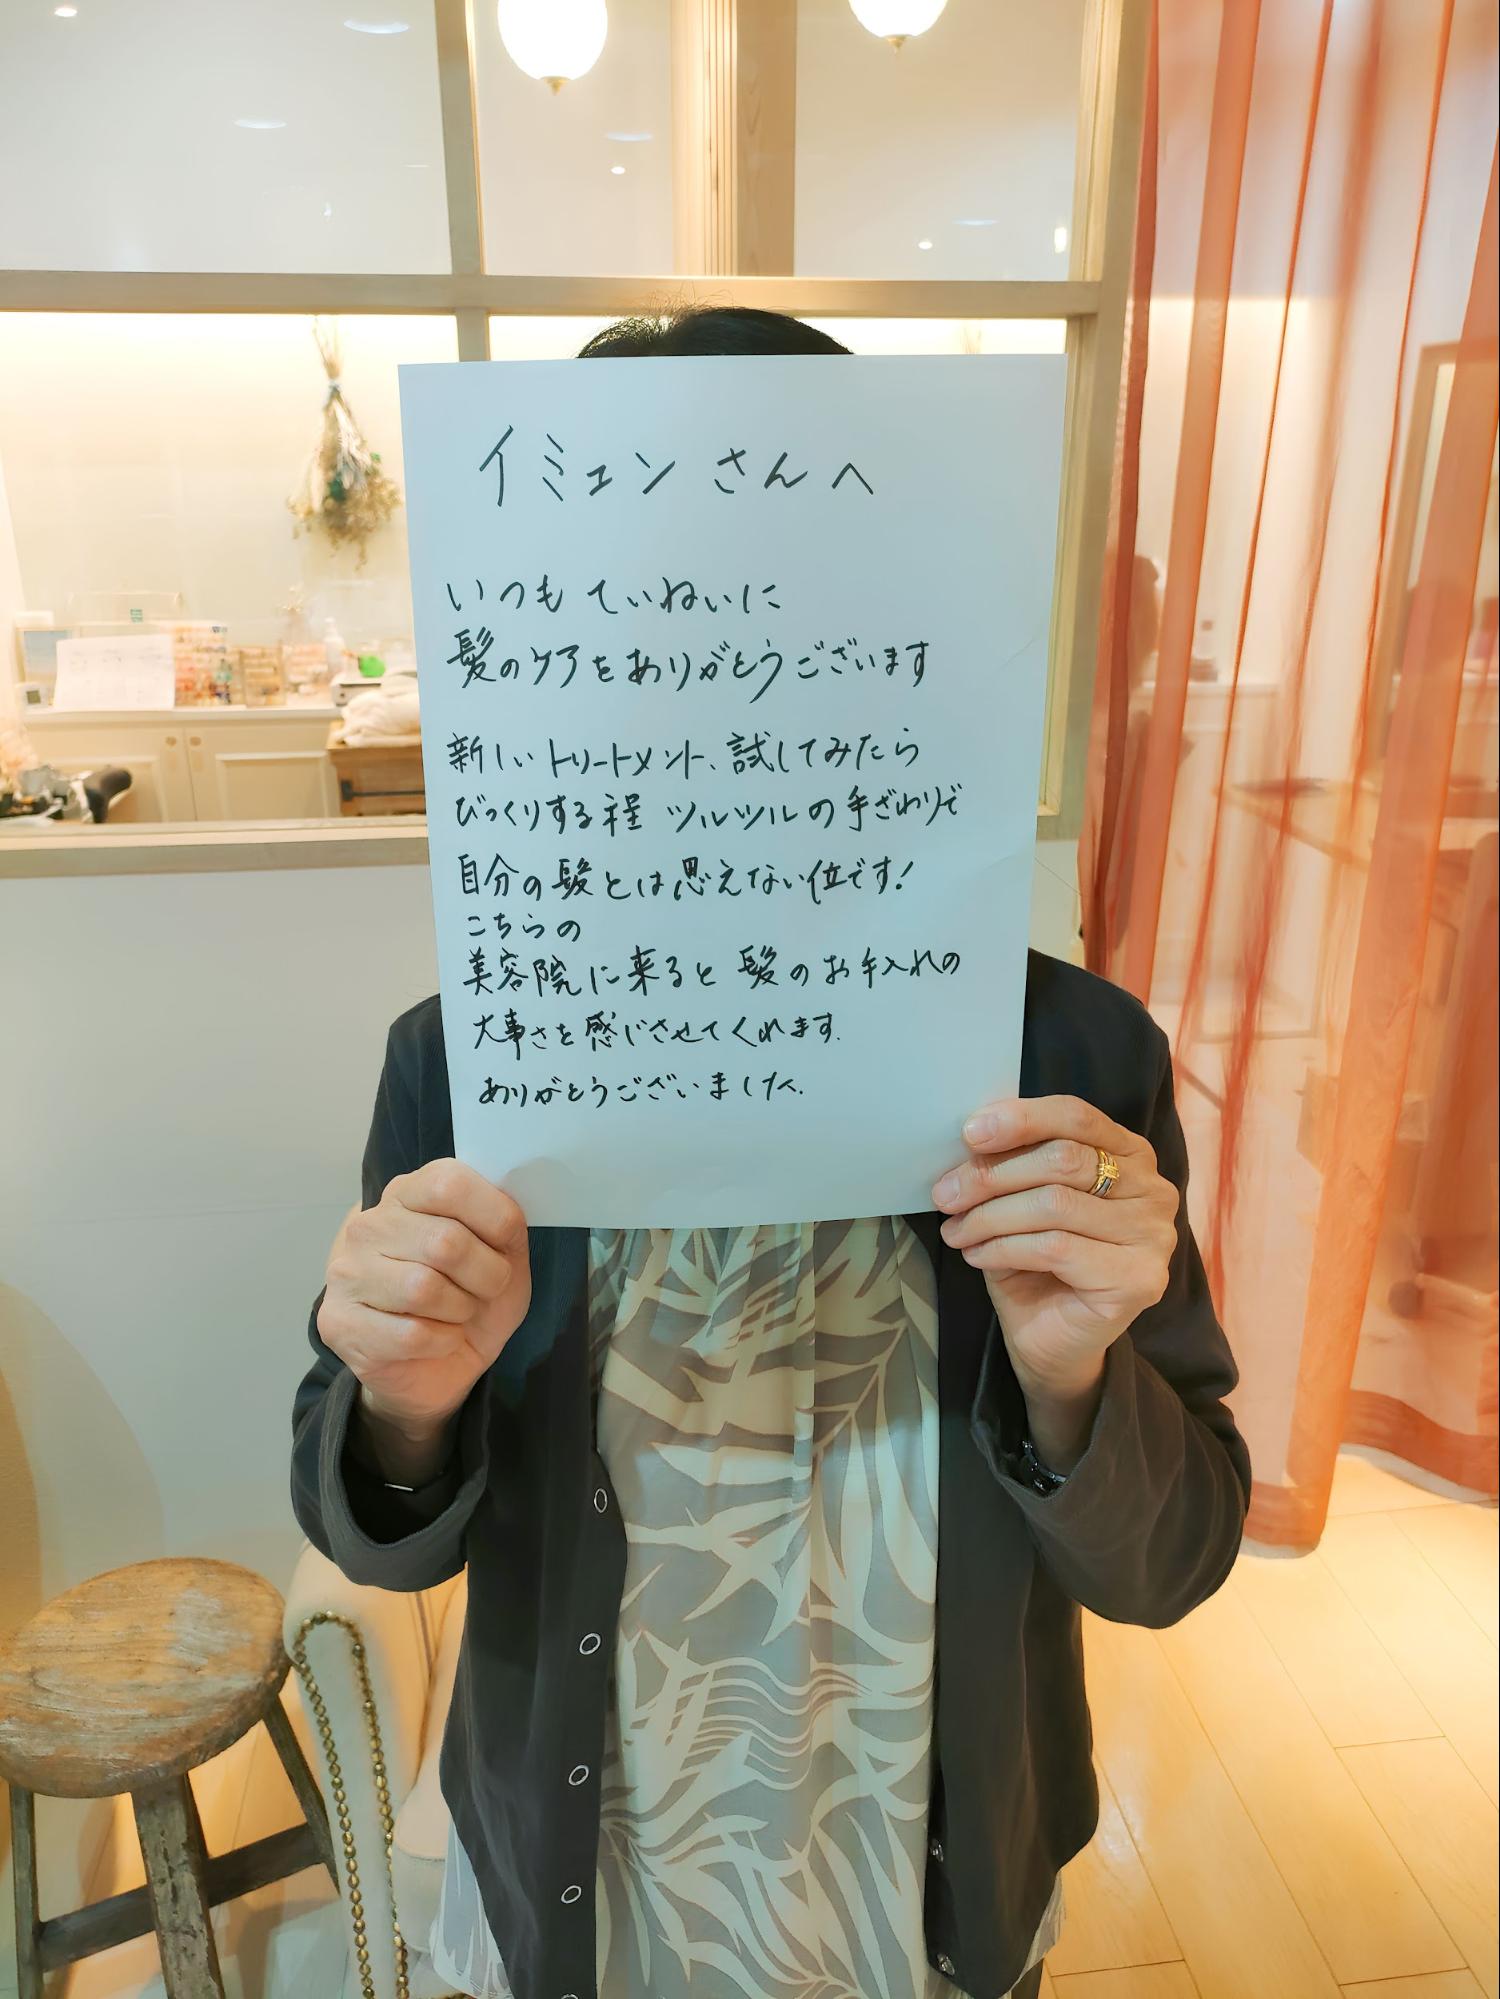 イミュンさんへ
いつもていねいに
髪のケアをありがとうございます
新しいトリートメント、試してみたら
びっくりする程ツルツルの手ざわりで
自分の髪とは思えない位です!
こちらの
美容院に来ると髪のお手入れの
大事さを感じさせてくれます.
ありがとうございました.